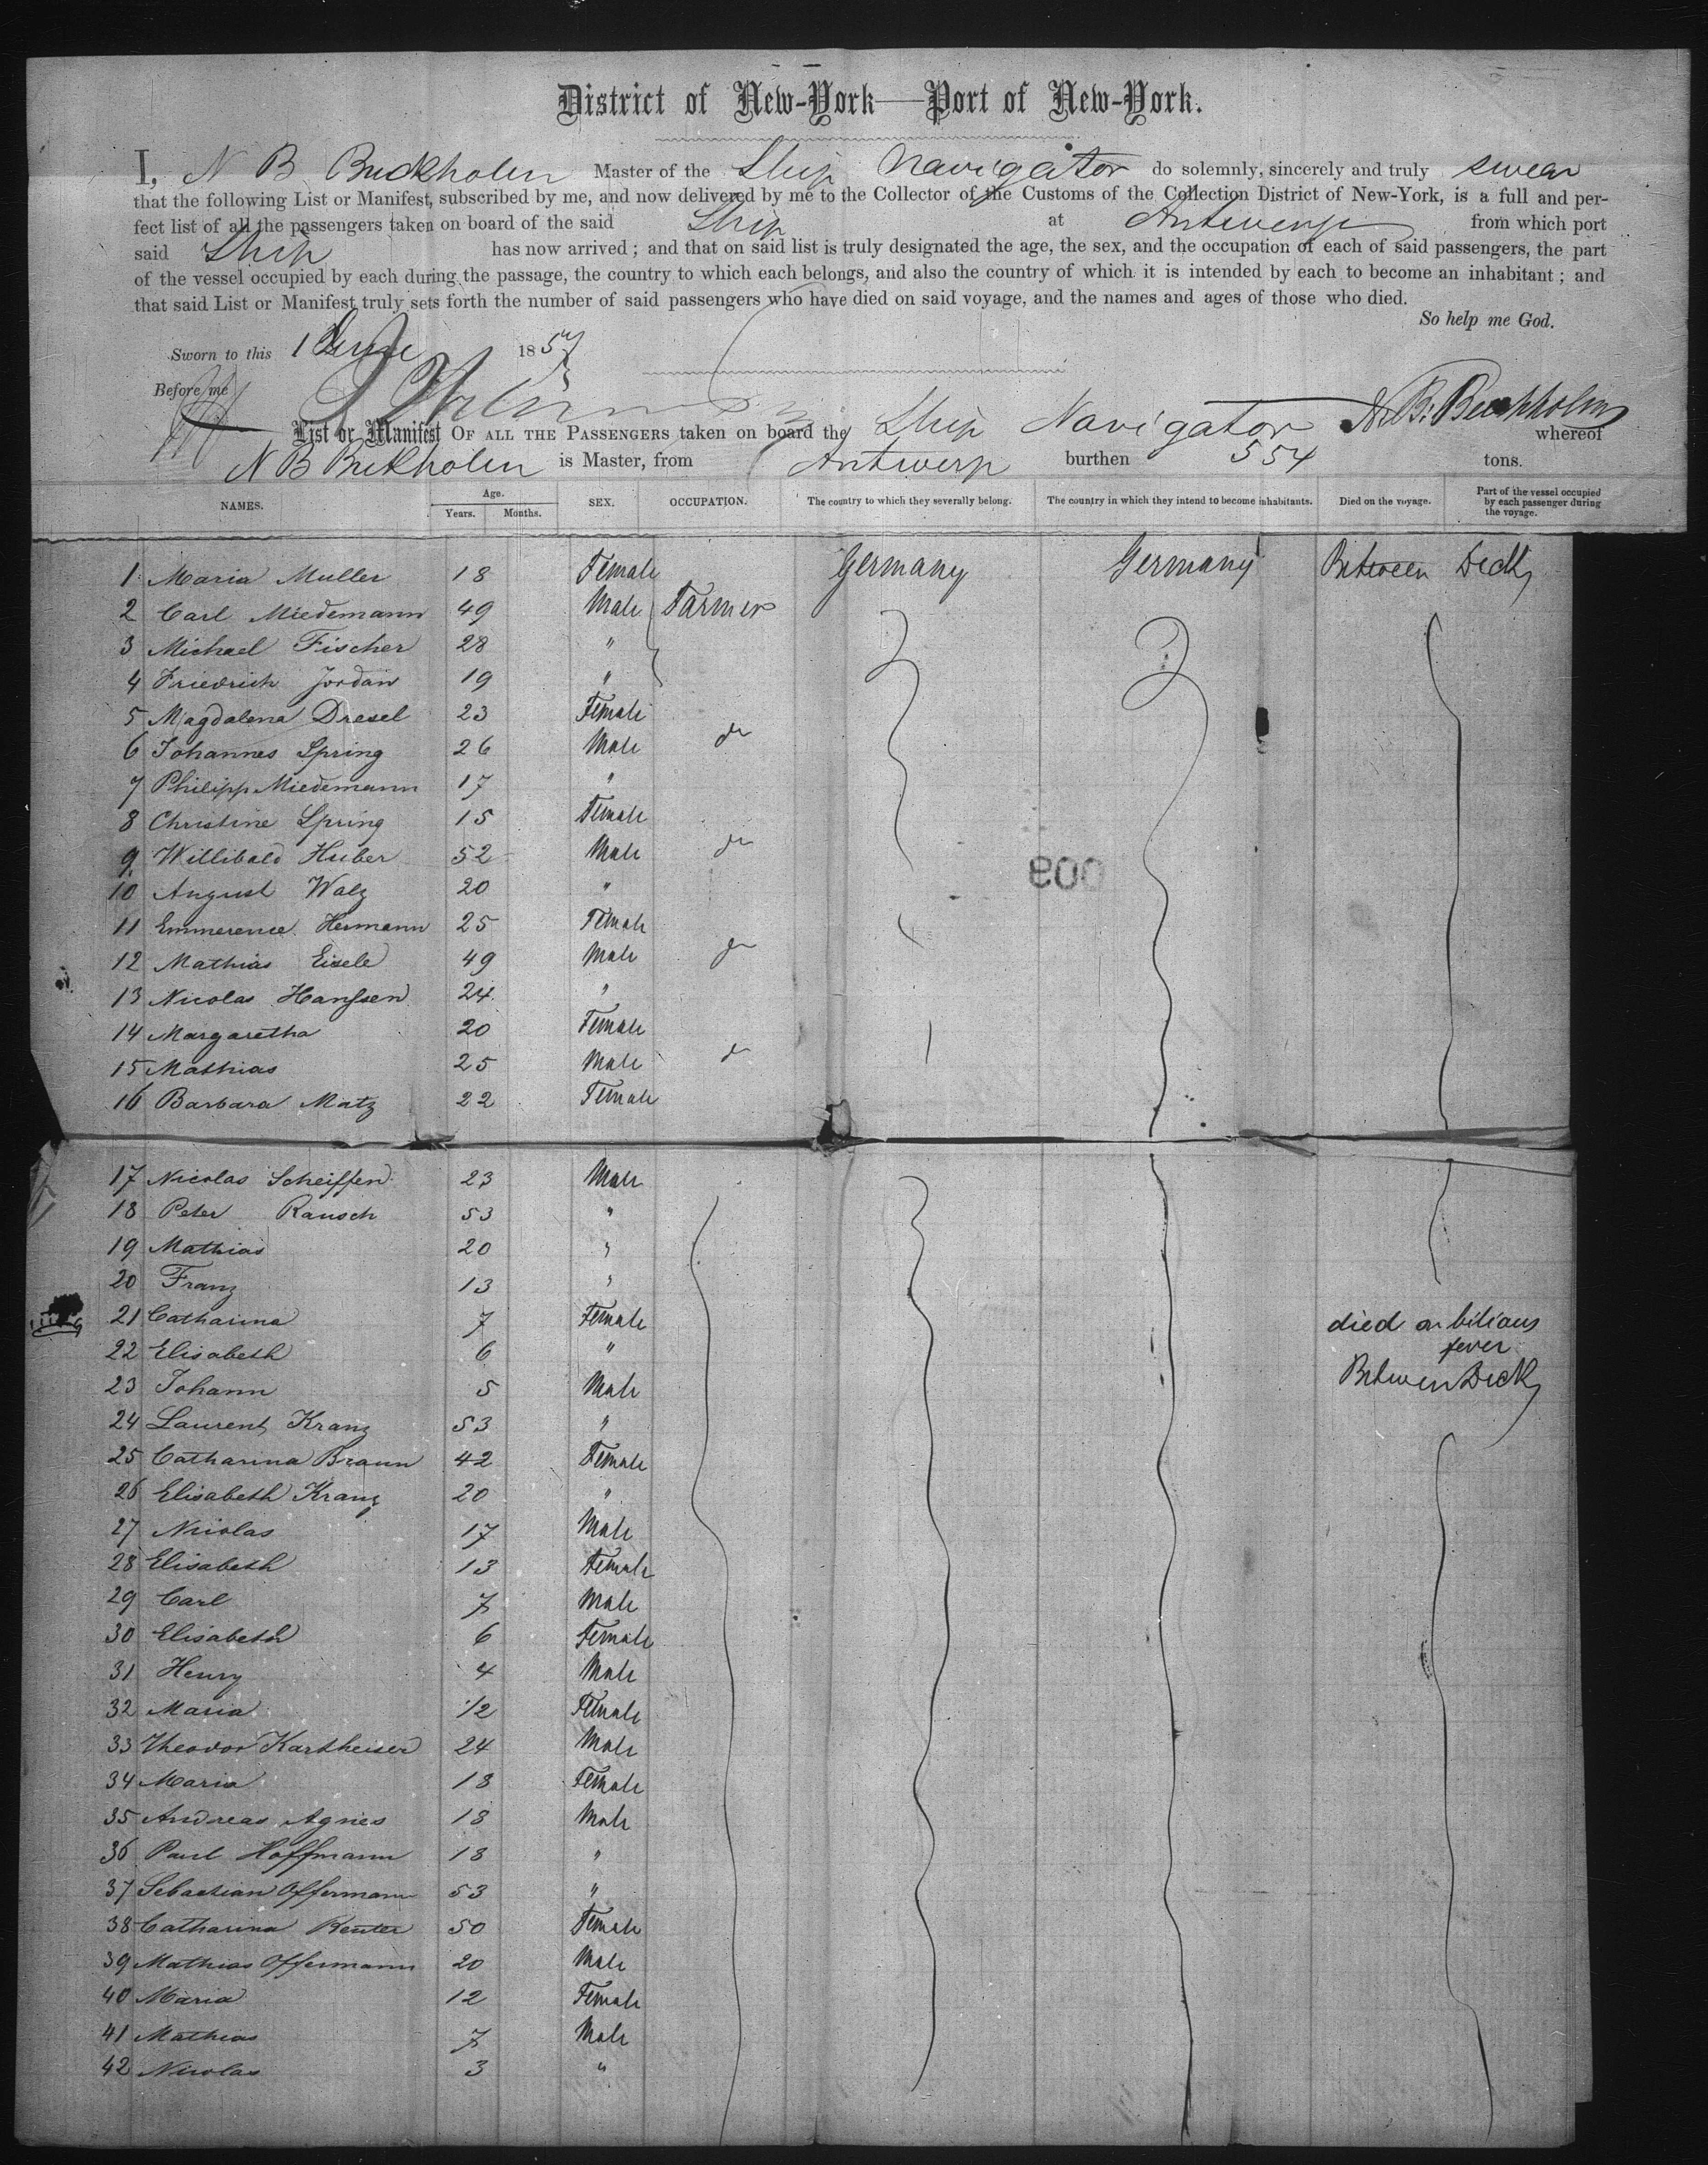 District of New-York—Port of New-York.
I, N B Buckholm Master of the Ship Navigator do solemnly, sincerely and truly swear
that the following List or Manifest, subscribed by me, and now delivered by me to the Collector of the Customs of the Collection District of New-York, is a full and per-
fect list of all the passengers taken on board of the said Ship at Antwerp from which port
said Ship has now arrived; and that on said list is truly designated the age, the sex, and the occupation of each of said passengers, the part
of the vessel occupied by each during the passage, the country to which each belongs, and also the country of which it is intended by each to become an inhabitant; and
that said List or Manifest truly sets forth the number of said passengers who have died on said voyage, and the names and ages of those who died.
So help me God.
Sworn to this 1 June 1857
Before me
N. B. Buckholm
List or Manifest OF ALL THE PASSENGERS taken on board the Ship Navigator whereof
N B Buckholm is Master, from Antwerp burthen 554 tons.
NAMES. Age. Years. Months. SEX. OCCUPATION. The country to which they severally belong. The country in which they intend to become inhabitants. Died on the voyage. Part of the vessel occupied by each passenger during the voyage.
1 Maria Muller 18 Female Germany Germany Between Deck
2 Carl Miedemann 49 Male Farmer
3 Michael Fischer 28 "
4 Friedrich Jordan 19 "
5 Magdalena Dresel 23 Female
6 Johannes Spring 26 Male do
7 Philipp Miedemann 17 "
8 Christine Spring 15 Female
9 Willibald Huber 52 Male do
10 August Walz 20 "
11 Emmerence Hermann 25 Female
12 Mathias Eisele 49 Male do
13 Nicolas Hanssen 24 "
14 Margaretha 20 Female
15 Mathias 25 Male do
16 Barbara Matz 22 Female
600
17 Nicolas Scheiffen 23 Male
18 Peter Rausch 53 "
19 Mathias 20 "
20 Franz 13 "
21 Catharina 7 Female died on bilious
fever
22 Elisabeth 6 "
23 Johann 5 Male Betwen Deck
24 Laurent Kranz 53 "
25 Catharina Braun 42 Female
26 Elisabeth Kranz 20 "
27 Nicolas 17 Male
28 Elisabeth 13 Female
29 Carl 7 Male
30 Elisabeth 6 Female
31 Henry 4 Male
32 Maria 1/2 Female
33 Theodor Kartheiser 24 Male
34 Maria 18 Female
35 Andreas Agnes 18 Male
36 Paul Hoffmann 18 "
37 Sebastian Offermann 53 "
38 Catharina Reuter 50 Female
39 Mathias Offermann 20 Male
40 Maria 12 Female
41 Mathias 7 Male
42 Nicolas 3 "